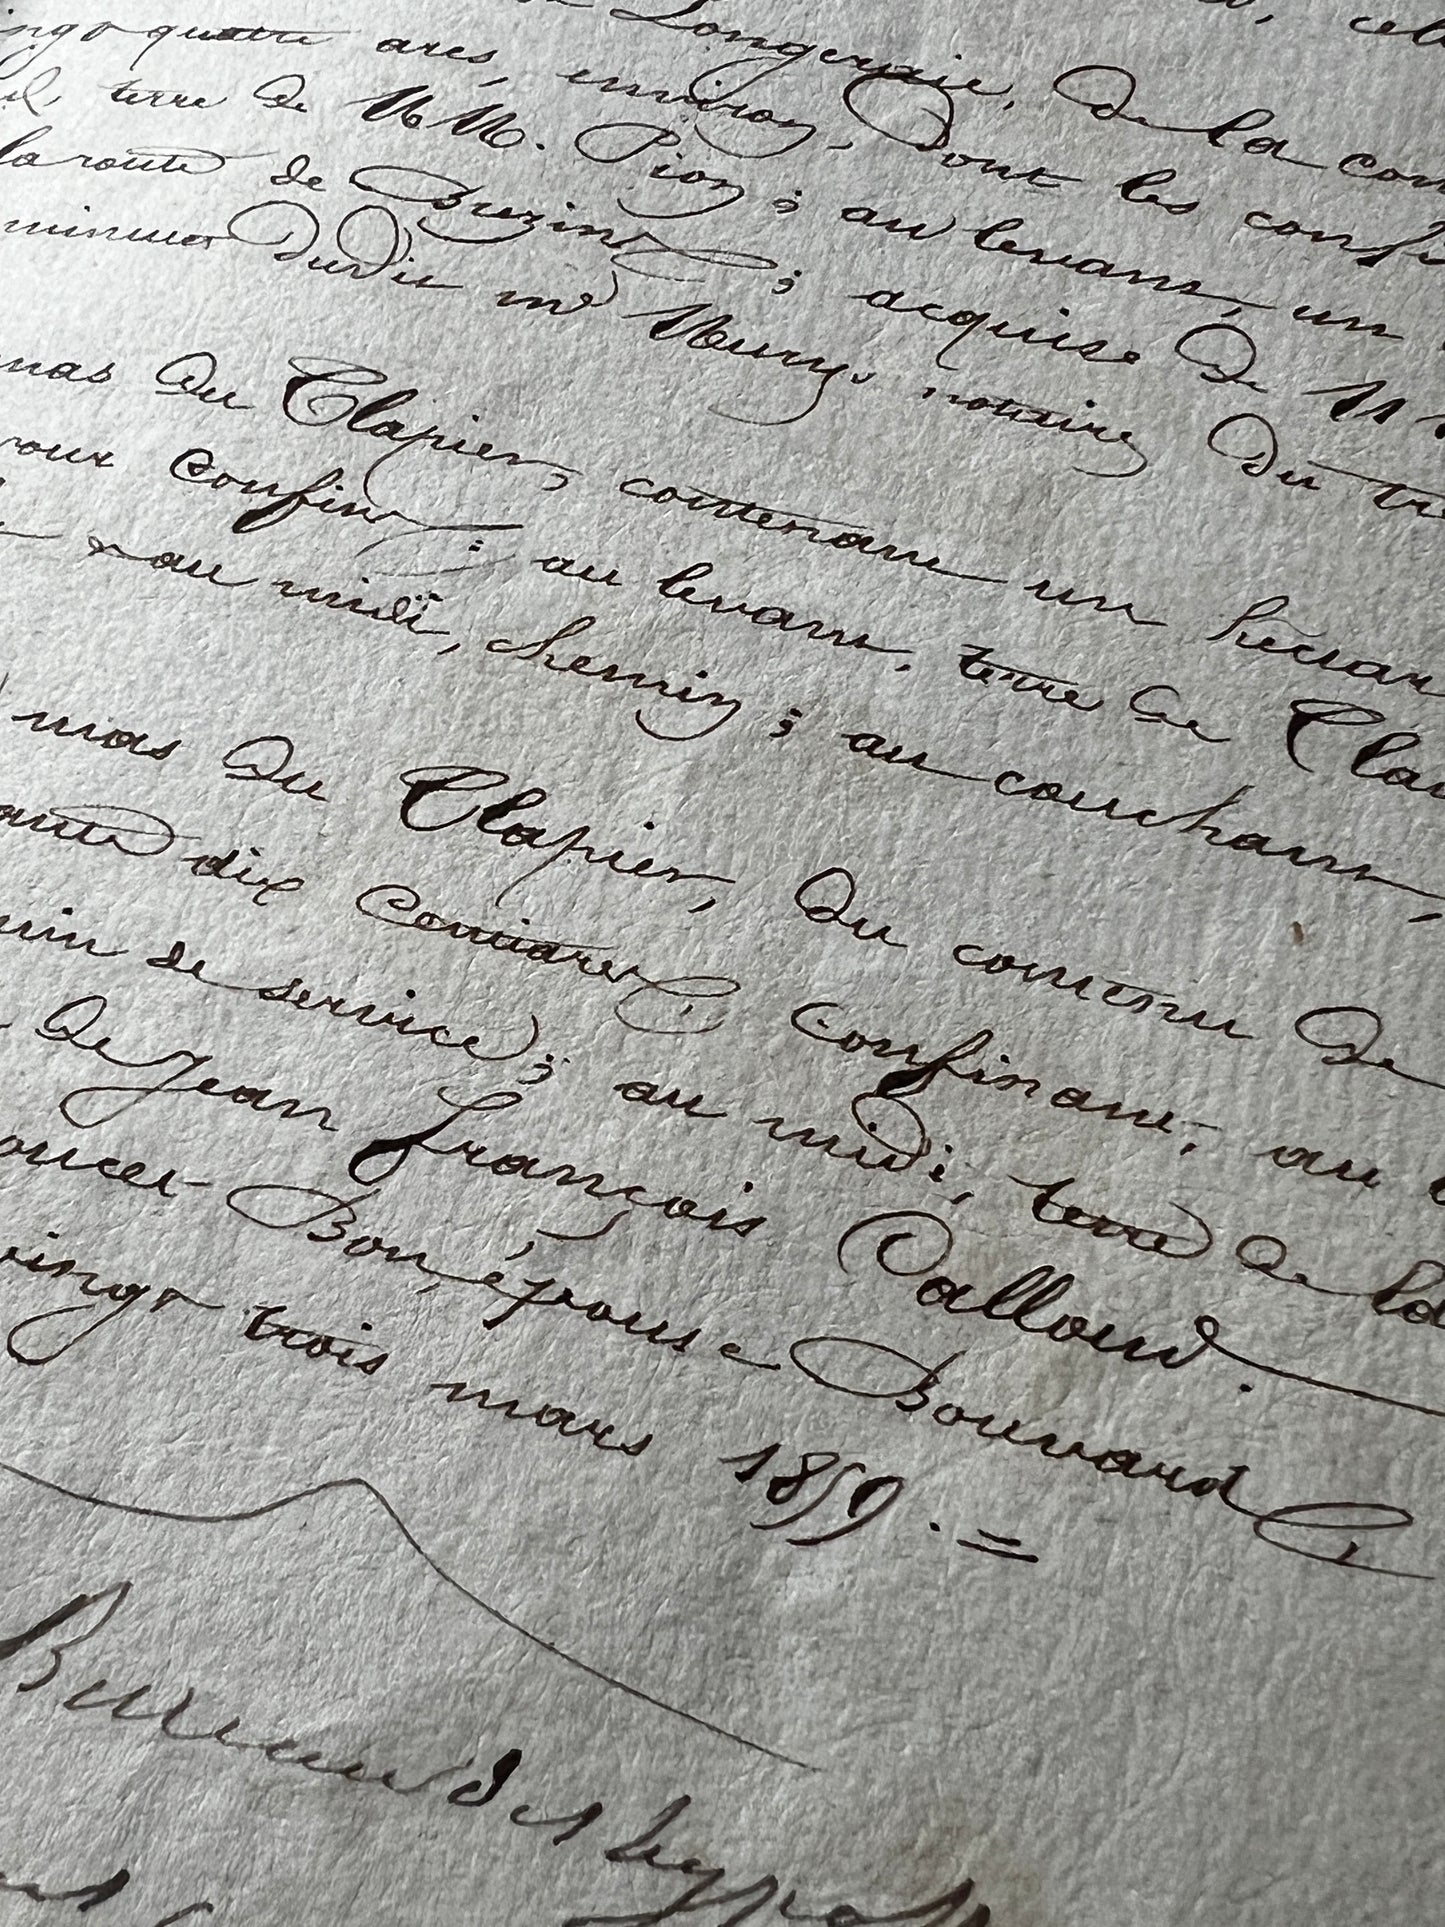 Longeraie, de la com
vingt quatre ares, environ, dont les confi
terre de MM. Pion; au levant, un
la route de Buzin; acquise de M
minutes dudit me Mury, notaire du
mas du Clapier, contenant un hectar
pour confins: au levant, terre de Clau
au midi, chemin; au couchant,
mas du Clapier, du contenu de
ante dix centiares confinant, au
min de service; au midi, terre de la
de Jean françois Palloud
Bon, épouse Bouvard
vingt trois mars 1859. =
Bureau des hypo